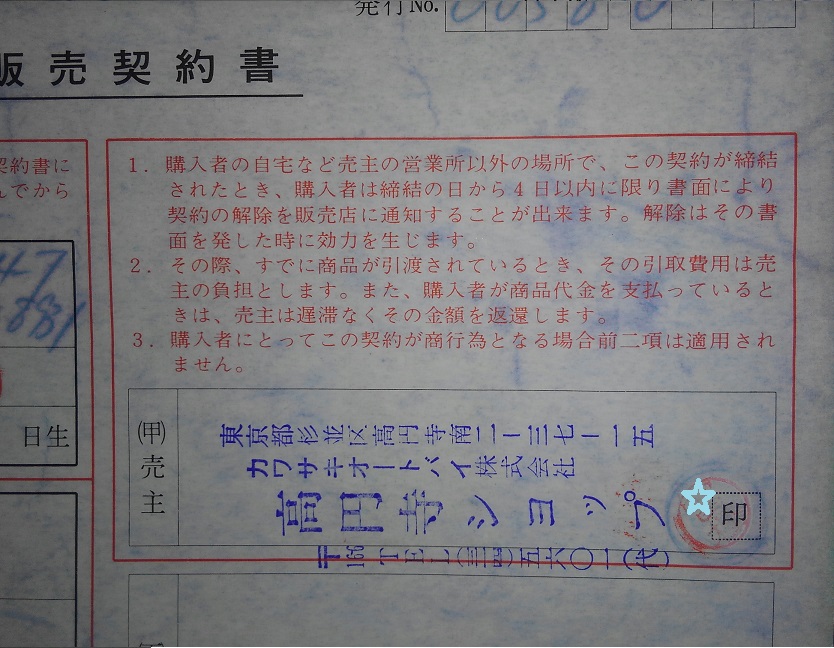 発行No.
販売契約書
契約書に
んでから
1. 購入者の自宅など売主の営業所以外の場所で、この契約が締結
されたとき、購入者は締結の日から4日以内に限り書面により
契約の解除を販売店に通知することが出来ます。解除はその書
面を発した時に効力を生じます。
2. その際、すでに商品が引渡されているとき、その引取費用は売
主の負担とします。また、購入者が商品代金を支払っていると
きは、売主は遅滞なくその金額を返還します。
3. 購入者にとってこの契約が商行為となる場合前二項は適用され
ません。
47
881
日生
(甲)売主
東京都杉並区高円寺南二ー三七ー一五
カワサキオートバイ株式会社
高円寺ショップ
印
〒166 TEL(三四)五六〇一(代)